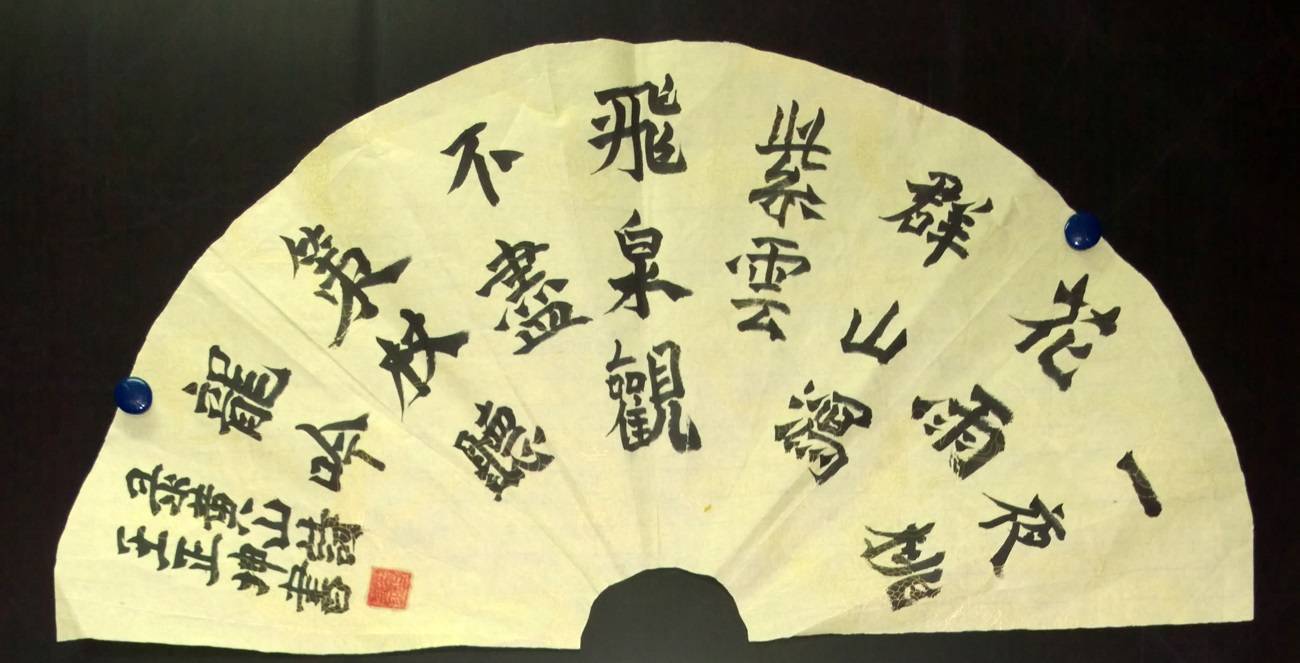 一夜桃
花雨
群山瀉
紫雲
飛泉觀
不盡
策杖聽
龍吟
山詩
王正坤書